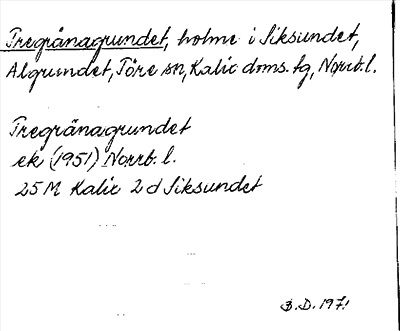 Tregrånagrundet, holme i Siksundet,
Algrundet, Töre sn, Kalix doms. tg, Norrb. l.
Tregrånagrundet
ek (1951) Norrb. l.
25 M Kalix 2 d Siksundet
B. D. 1971